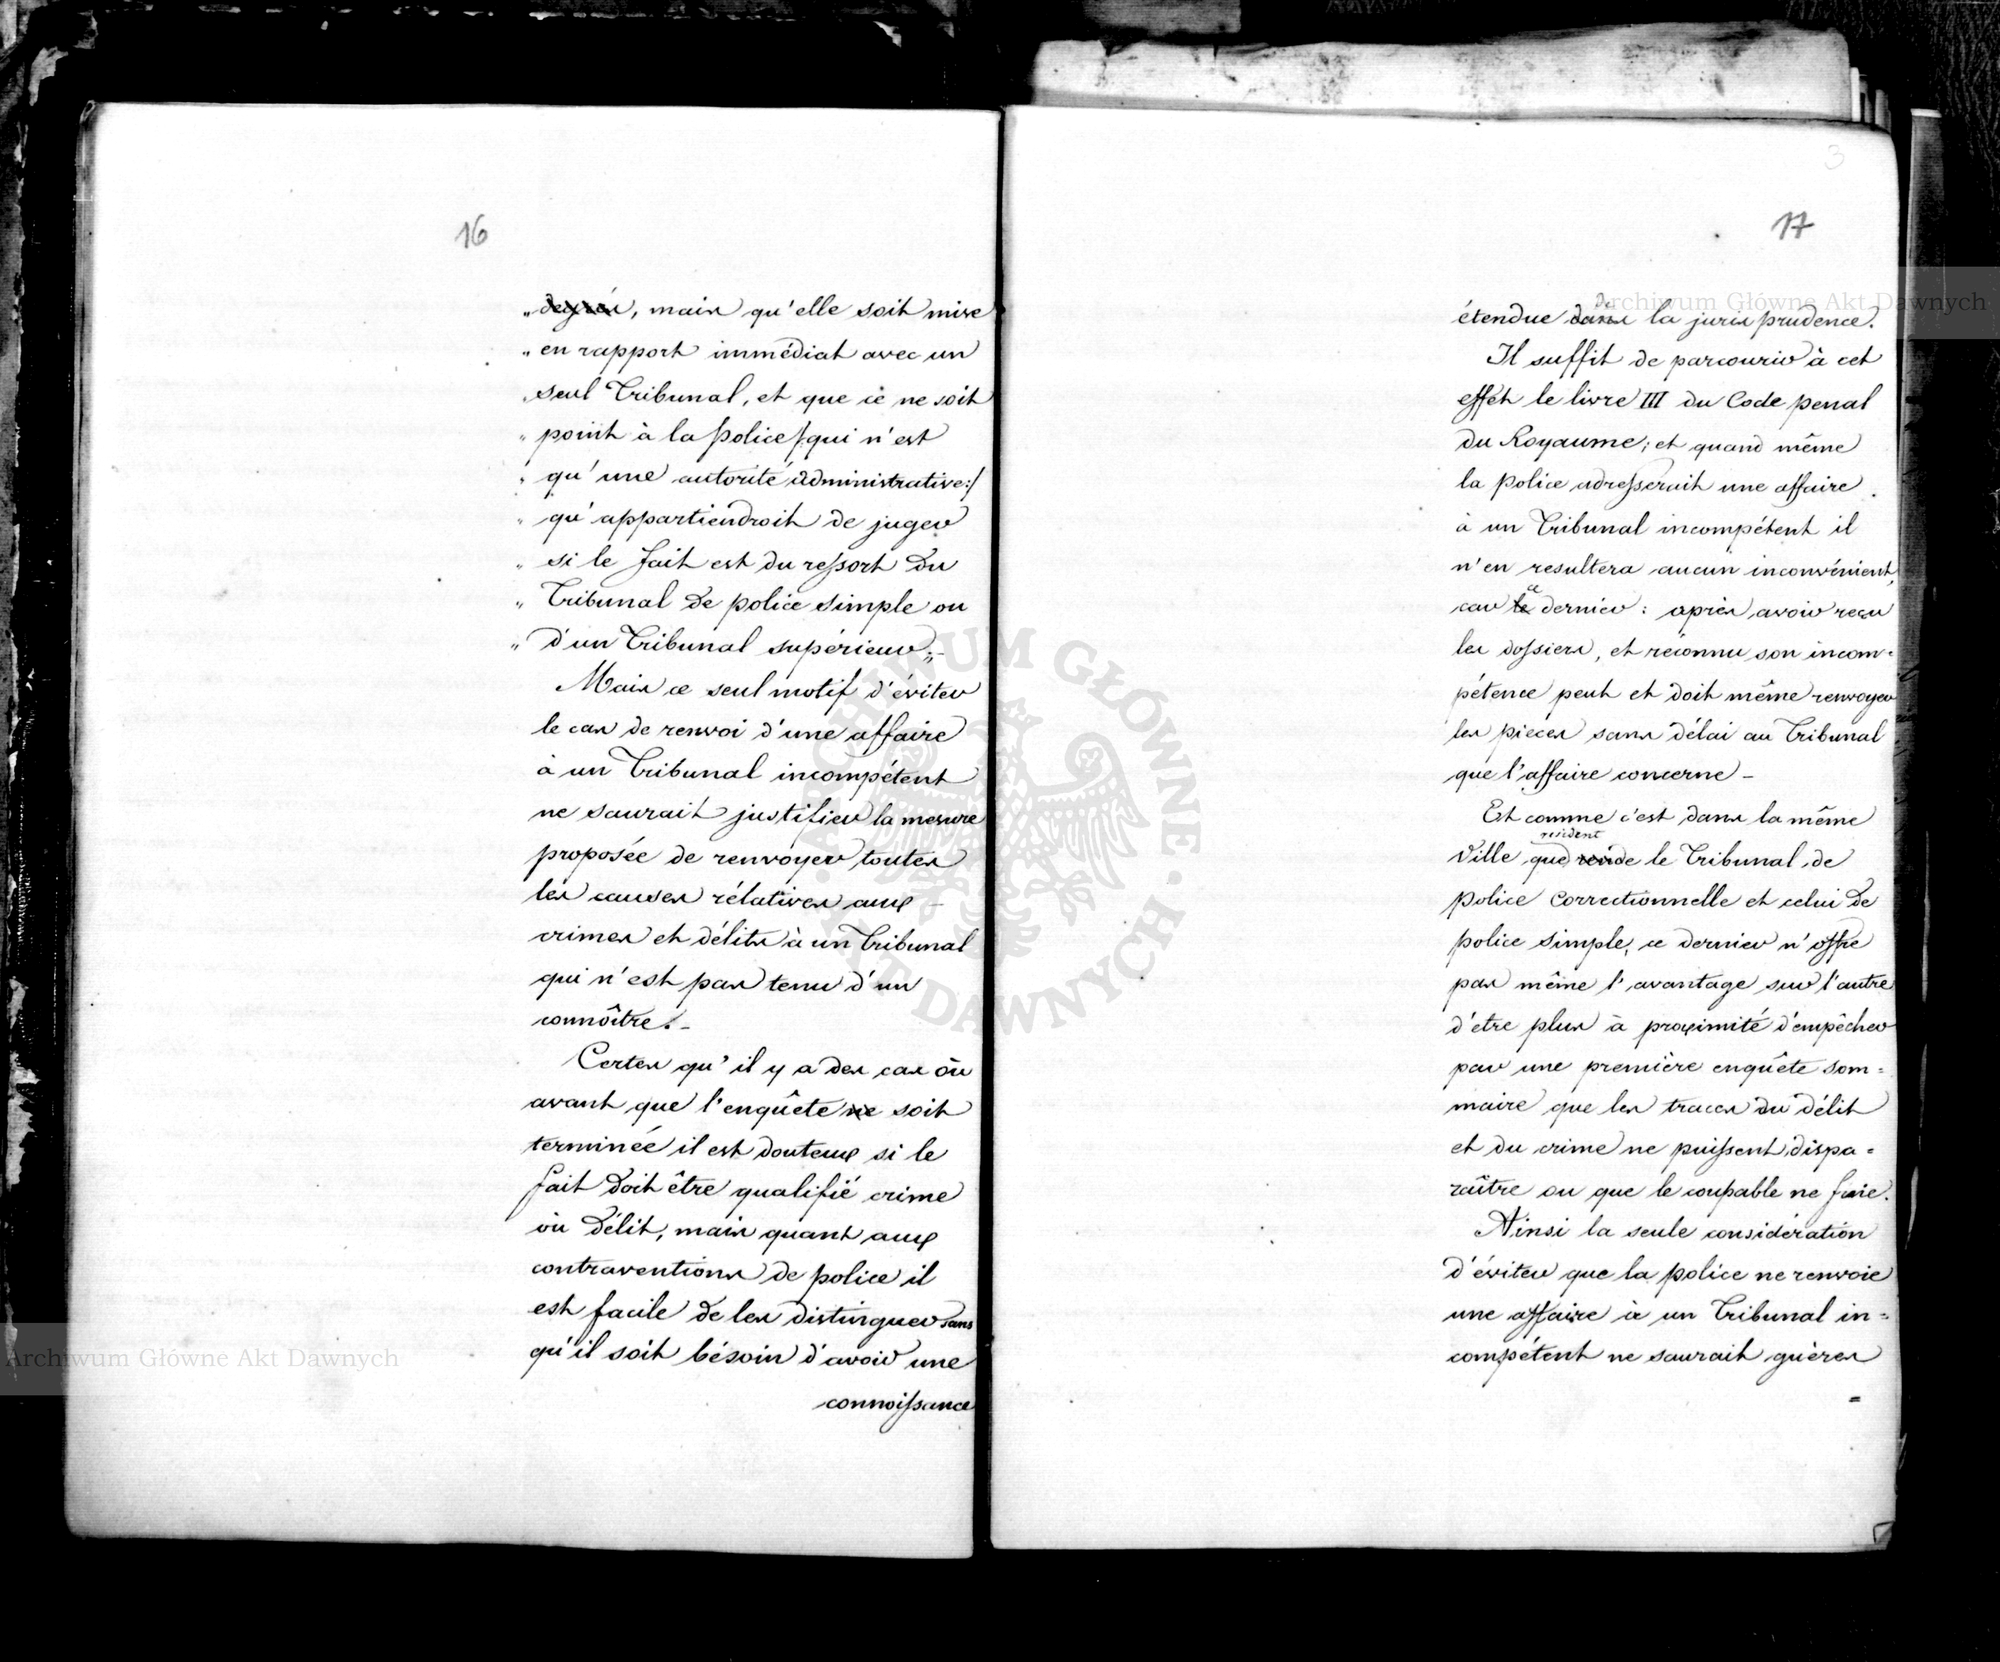 16
„ degrés, mais qu'elle soit mise
„ en rapport immédiat avec un
„ seul Tribunal, et que ce ne soit
„ point à la police /: qui n'est
„ qu'une autorité administrative :/
„ qu'appartiendroit de juger
„ si le fait est du ressort du
„ Tribunal de police simple ou
„ d'un Tribunal supérieur „ –
Mais ce seul motif d'éviter
le cas de renvoi d'une affaire
à un Tribunal incompétent
ne saurait justifier la mesure
proposée de renvoyer toutes
les causes rélatives aux –
crimes et délits à un Tribunal
qui n'est pas tenu d'un
connôitre. –
Certes qu'il y a des cas où
avant que l'enquête ne soit
terminée il est douteux si le
fait doit être qualifié crime
où délit, mais quant aux
contraventions de police il
est facile de les distinguer sans
qu'il soit bésoin d'avoir une
connoissance
3
17
de
étendue dans la jurisprudence.
Il suffit de parcourir à cet
effét le livre III du Code penal
du Royaume; et quand même
la police adresserait une affaire
à un Tribunal incompétent il
n'en resultera aucun inconvénient,
ce
car le dernier: après avoir reçu
les dossiers, et réconnu son incom=
pétence peut et doit même renvoyer
les pieces sans délai au Tribunal
que l'affaire concerne –
Et comme c'est dans la même
resident
Ville que reside le Tribunal de
police Correctionnelle et celui de
police simple, ce dernier n'offre
pas même l'avantage sur l'autre
d'etre plus à proximité d'empêcher
par une première enquête som=
maire que les traces du délit
et du crime ne puissent dispa=
raître ou que le coupable ne fuie.
Ainsi la seule considération
d'éviter que la police ne renvoie
une affaire à un Tribunal in=
compétent ne saurait guères
=
Archiwum Główne Akt Dawnych
Archiwum Główne Akt Dawnych
ARCHIWUM GŁÓWNE AKT DAWNYCH